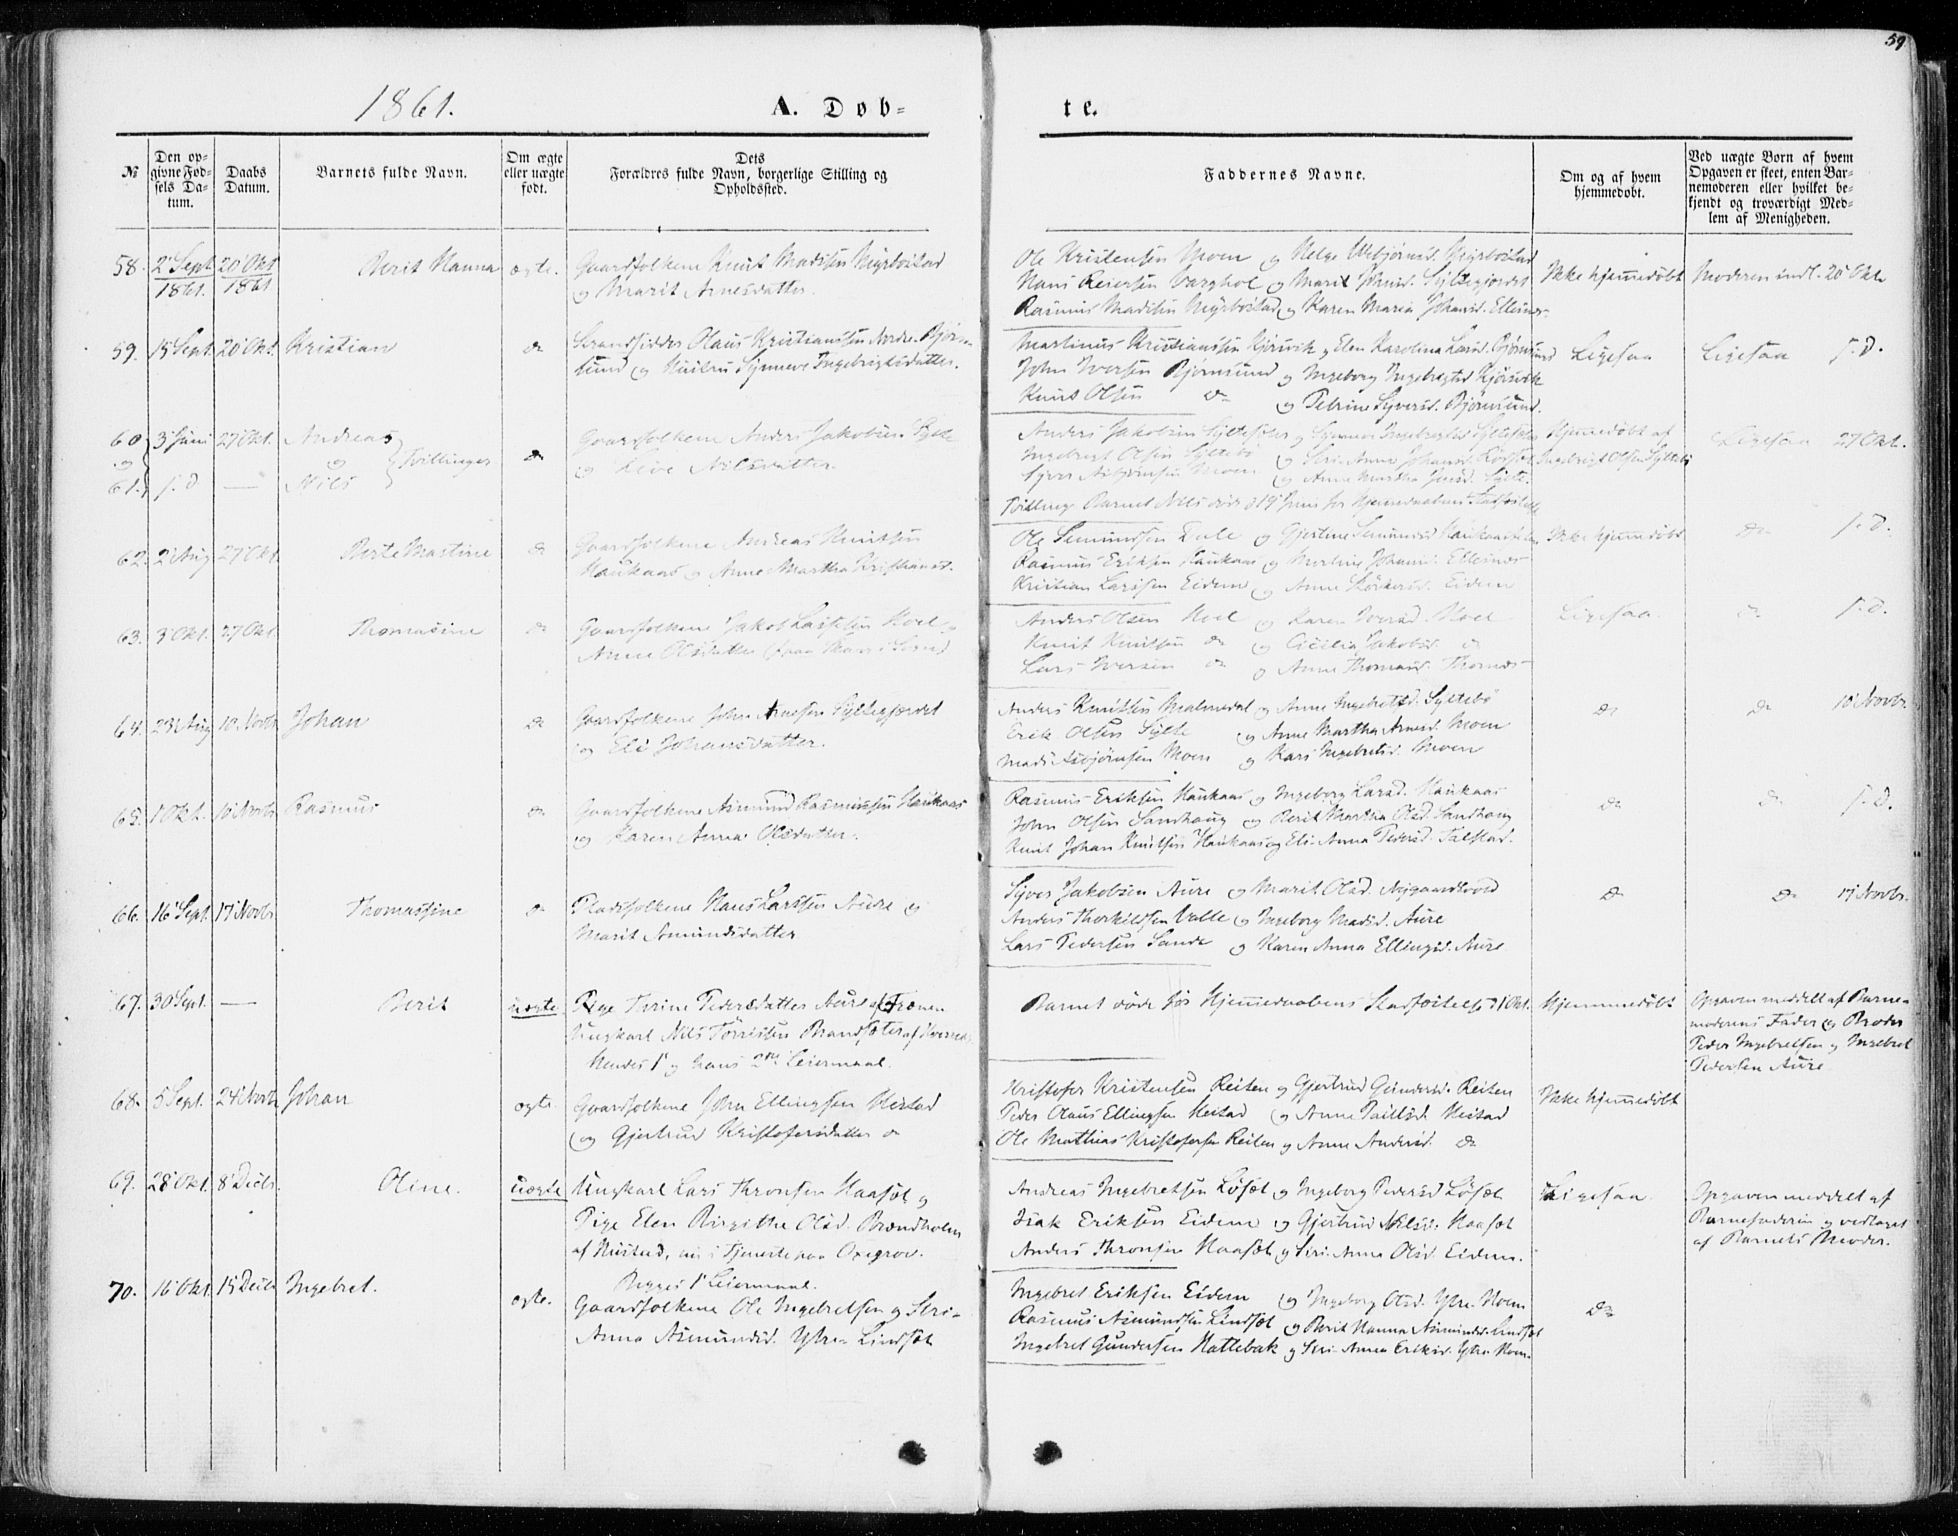 59
1861.
A. Døb-
te.
№
Den op-
givne Fød-
sels Da-
tum.
Daabs
Datum.
Barnets fulde Navn.
Om ægte
eller uægte
født.
Dets
Forældres fulde Navn, borgerlige Stilling og
Opholdssted.
Faddernes Navne.
Om og af hvem
hjemmedøbt.
Ved uægte Børn af hvem
Opgaven er skeet, enten Bar-
nemoderen eller hvilket be-
kjendt og troværdigt Med-
lem af Menigheden.
58. 2 Sept 1861. 20 Okt 1861 Berit Hanna ægte.
Gaardfolkene Knut Madsen Myrbostad
og Marit Arnesdatter.
Ole Kristensen Moen og Helge Myrbostad
Hans Reiersen Varghol og Marit
Rasmus Madsen Myrbostad og Karen Maria Johansd. Ellines-
Ikke hjemmedøbt
Moderen indl. 20 Okt.
59. 15 Sept. 20 Okt. Kristian do
Strandsidder Olaus Kristianssen Nordre Bjørn-
sund og Hustru Synneve Ingebrigtsdatter.
Martinus Kristianssen og Elen Karolina Larsd. Bjørnsund
John Iversen Bjørnsund og Ingeborg
Knut Olsen do og Petrine Syversd. Bjørnsund.
Ligesaa
Ligesaa f. D.
60 og 61. 3 Juni 27 Okt. Andreas og Nils Tvillinger do
f. d —
Gaardfolkene Anders Jakobsen Sylte
og Live Nilsdatter.
Anders Jakobsen og Synneve
Ingebrigt Olsen Syltebø og Siri Anna Johansd.
Moen og Anne Martha Sylte.
Tvilling Barnet Nils døde 19 Juni før Hjemmedaabens Stadfæstelse
Hjemmedøbt af
Ingebrigt Olsen Syltebø
Ligesaa 27 Okt.
62. 2 Aug 27 Okt. Berte Mastine do
Gaardfolkene Andreas Knutsen
Haukaas og Anne Martha Kristiansd.
Ole Dale og Gjertine
Rasmus Eriksen Haukaas og Ellines-
Kristian Larssen Eidem og Anne Eidem
Ikke hjemmedøbt
do f. D.
63. 3 Okt. 27 Okt. Thomasine do
Gaardfolkene Jakob Lassesen Hoel og
Anne Olsdatter
Anders Olsen Hoel og Karen Iversd. Hoel
Knut Knutsen do og Cicilia Jakobsd. do
Lars Iversen do og Anne Thomasd. Thornes-
Ligesaa
do f. D.
64. 23 Aug 10 Novbr Johan do
Gaardfolkene John Arnesen Syltegjerdet
og Eli Johansdatter.
Anders Knutsen Malmedal og Anne Ingebretsd. Syltebø
Erik Olsen Sylte og Anne Martha Arnesd. Moen
Mads Asbjørnsen Moen og Kari Ingebretsd. Moen
do
do 10 Novbr.
65. 1 Okt. 10 Novbr. Rasmus do
Gaardfolkene Asmund Rasmussen Haukaas
og Karen Anna Olsdatter.
Rasmus Eriksen Haukaas og Ingeborg Larsd. Haukaas
John Olsen Sandhaug og Berit Martha Olsd. Sandhaug
Knut Johan Knutsen Haukaas og Eli Anna Pedersd. Talstad.
do
do f. D.
66. 16 Sept. 17 Novbr. Thomassine do
Pladsfolkene Hans Larssen Aure og
Marit Amundsdatter
Syver Jakobsen Aure og Marit Olsd. Nygaardvold
Anders Thorkildsen Valle og Ingeborg Madsd. Aure
Lars Pedersen Sande og Karen Anna Ellingsd. Aure
do
do 17 Novbr.
67. 30 Sept. — Berit uægte
Pige Perine Pedersdatter Aure af Frænen
Ungkarl Nils Torrissen Brandsæter af
Hendes 1e og hans 2det Leiermaal.
Barnet døde før Hjemmedaabens Stadfæstelse d 1 Okt.
Hjemmedøbt
Opgaven meddelt af Barne-
moderens Fader og Broder
Peder Ingebretsen og Ingebret
Pedersen Aure
68. 5 Sept. 24 Novbr Johan ægte.
Gaardfolkene John Ellingsen Hestad
og Gjertrud Kristofersdatter do
Kristofer Kristensen Reiten og Gjertrud Gundersd. Reiten
Peder Olaus Ellingsen Hestad og Anne Hestad
Ole Mathias Kristofersen Reiten og Anne Andersd. do
Ikke hjemmedøbt
69. 28 Okt. 8 Decbr. Oline. uægte
Ungkarl Lars Thronsen Haasæt og
Pige Elen Birgithe Olsd. Brændholm
af Hustad, nu i Tjeneste paa Oxegrov.
Begges 1e Leiermaal.
Andreas Ingebretsen Løsæt og Ingeborg Pedersd Løsæt
Isak Eriksen Eidem og Gjertrud Nilsd. Haasæt
Anders Thronsen Haasæt og Siri Anna Olsd. Eidem.
Ligesaa.
Opgaven meddelt af
Barnefaderen og vedtaget
af Barnets Moder.
70. 16 Okt. 15 Decbr Ingebret. ægte.
Gaardfolkene Ole Ingebretsen og Siri
Anna Asmundsd. Ytre Lindsæt
Ingebret Eriksen Eidem og Ingeborg Olsd. Ytre Hoem
Rasmus Asmundsen Lindsæt og Berit Hanna Asmundsd. Lindsæt
Ingebret Gundersen Hattebak og Siri Anna Eriksd. Ytre Hoem.
do